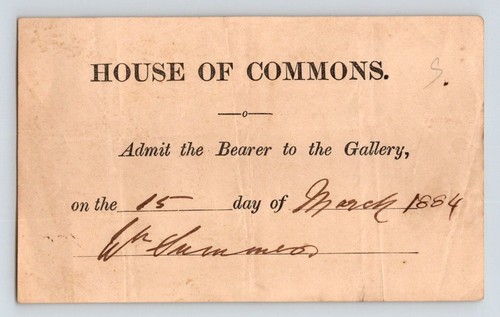 HOUSE OF COMMONS.
S.
Admit the Bearer to the Gallery,
on the 15 day of March 1884
Wm Summers